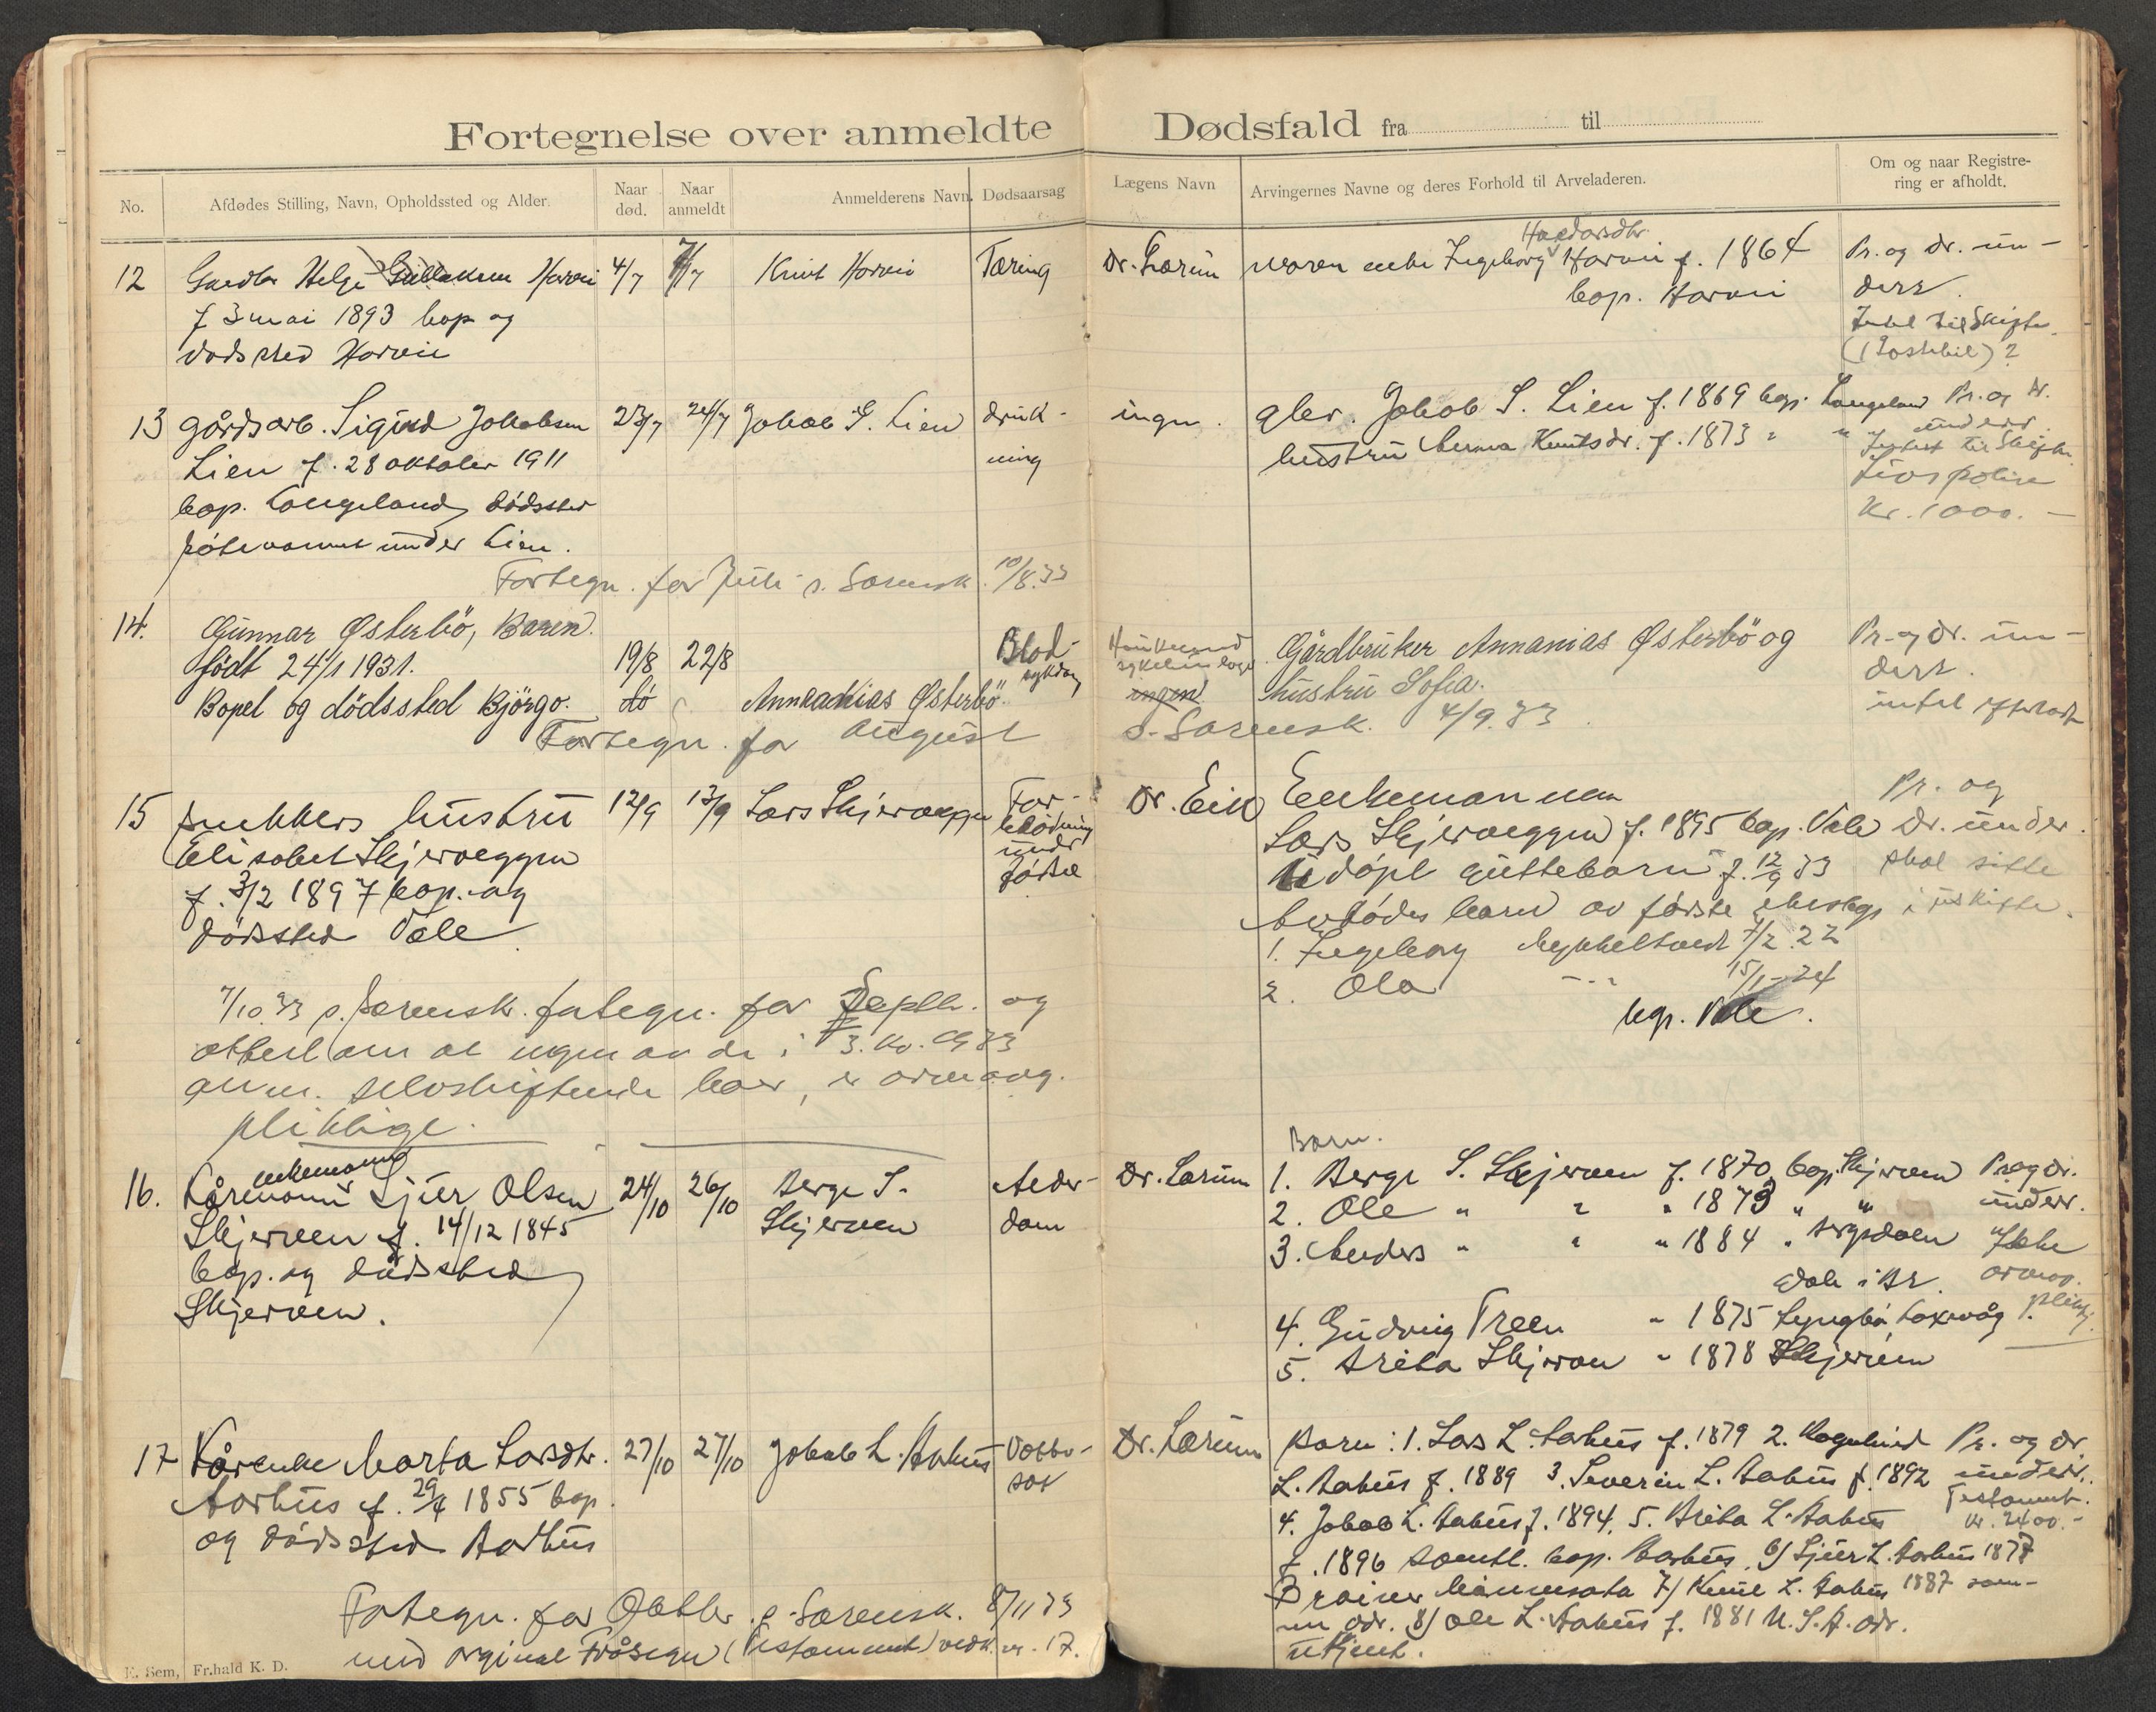 Fortegnelse over anmeldte Dødsfald fra til
No.
Afdødes Stilling, Navn, Opholdssted og Alder.
Naar død.
Naar anmeldt
Anmelderens Navn.
Dødsaarsag
Lægens Navn
Arvingernes Navne og deres Forhold til Arveladeren.
Om og naar Registre-
ring er afholdt.
12 Helge Gullaksen Horvei 4/7 7/7 Knut Horvei Tæring
f 3 mai 1893 bop og
dødssted Horvei
Dr. Lærum moren enke Ingeborg Haldorsdtr. Horvei f. 1864
bop. Horvei
Pr. og dr. un-
derr.
Intet til Skifte
13 gårdsarb. Sigurd Jakobsen 23/7 24/7 Jakob S. Lien druk-
ning
Lien f. 28 oktober 1911
bop. Langeland, dødssted
under Lien.
ingen. Jakob S. Lien f. 1869 bop. Langeland
hustru Anna Knutsdr. f. 1873 " "
Pr. og dr.
underr.
Intet til Skifte
Livspolise
Kr. 1000.-
Fortegn. for Juli s. Sorensk. 10/8.33
14. Gunnar Østerbö, Barn.
født 24/1 1931. 19/8 22/8
Bopel og dödssted Björgo. dö Annanias Østerbö.
Blod-
sykdom
Haukeland
ingen
Gårdbruker Annanias Østerbö og
hustru Sofia.
Pr. og dr. un-
derr.
intet efterlatt
Fortegn. for August s. Sorensk. 4/9.33.
15 hustru 12/9 13/9 Lars Skjerveggen
Elisabet Skjerveggen
f. 3/2 1897 bop. og
dødssted Vole
For-
blødning
under
fødsel
Dr. Eik Enkemannen
Lars Skjerveggen f. 1895 bop. Vole
Udöpt guttebarn f. 12/9 33
Avdödes barn av første ekteskap
1. Ingeborg Mykkeltvedt 7/2 22
2. Ola - " - 15/1-24
bop. Vole.
Pr. og
Dr. under.
skal sitte
i uskifte.
7/10.33 s. Sorensk. fortegn. for Septbr. og
attest om at ingen av de i 3. kv. 1933
anm. selvskiftende boer, er arveavg.
pliktige.
16. Kårmann enkemann Sjur Olsen 24/10 26/10 Berge S.
Skjerveen
Skjerveen f. 14/12 1845
bop. og dødssted
Skjerveen.
Alder-
dom
Dr. Lærum
Barn.
1. Berge S. Skjerveen f. 1870, bop. Skjerveen
2. Ole " " " 1873 " "
3. Anders " " " 1884 "
4. Gudveig Treen " 1875 Lyngbö Laksevåg
5. Brita Skjerveen " 1878 Skjerveen
Pr. og dr.
underr.
Ikke
arveavg.
pliktig.
17 Kårenke Marta Larsdtr. 27/10 27/10 Jakob L. Aarhus
Aarhus f. 29/4 1855 bop.
og dødssted Aarhus
Vatter-
sot
Dr. Lærum Barn: 1. Lars L. Aarhus f. 1879 2. Ragnhild
L. Aarhus f. 1889 3. Severin L. Aarhus f. 1892
4. Jakob L. Aarhus f. 1894. 5. Brita L. Aarhus
f. 1896 samtl. bop. Aarhus 6) Sjur L. Aarhus 1877
Minnesota 7) Knut L. Aarhus 1887 sam-
me adr. 8) Ole L. Aarhus f. 1881 U.S.A. adr.
ukjent.
Pr. og dr.
underr.
Testament.
kr. 2400.-
Fortegn. for Oktbr. s. Sorensk. 8/11 33
med orginal (Testament) vedk. nr. 17.
E. Sem, Fr.hald K. D.